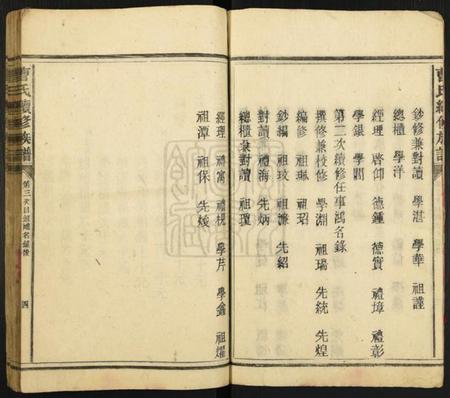 曹氏續修族譜
鈔修兼對讀 學湛 學華 祖謹
總櫃 學洋
經理 啓仰 德鍾 德實 禮璋 禮彰
學銀 學開
第二次續修任事鴻名錄
撰修兼校修 學淵 祖瑞 先統 先煌
編修 祖琳 祖玿
鈔編 祖玟 祖濂 先紹
對讀 禮海 先炳
總櫃兼對讀 祖瓊
經理 禮富 祖視 學芹 學鑫 祖耀
祖潭 祖保 先煥
曹氏續修族譜
四